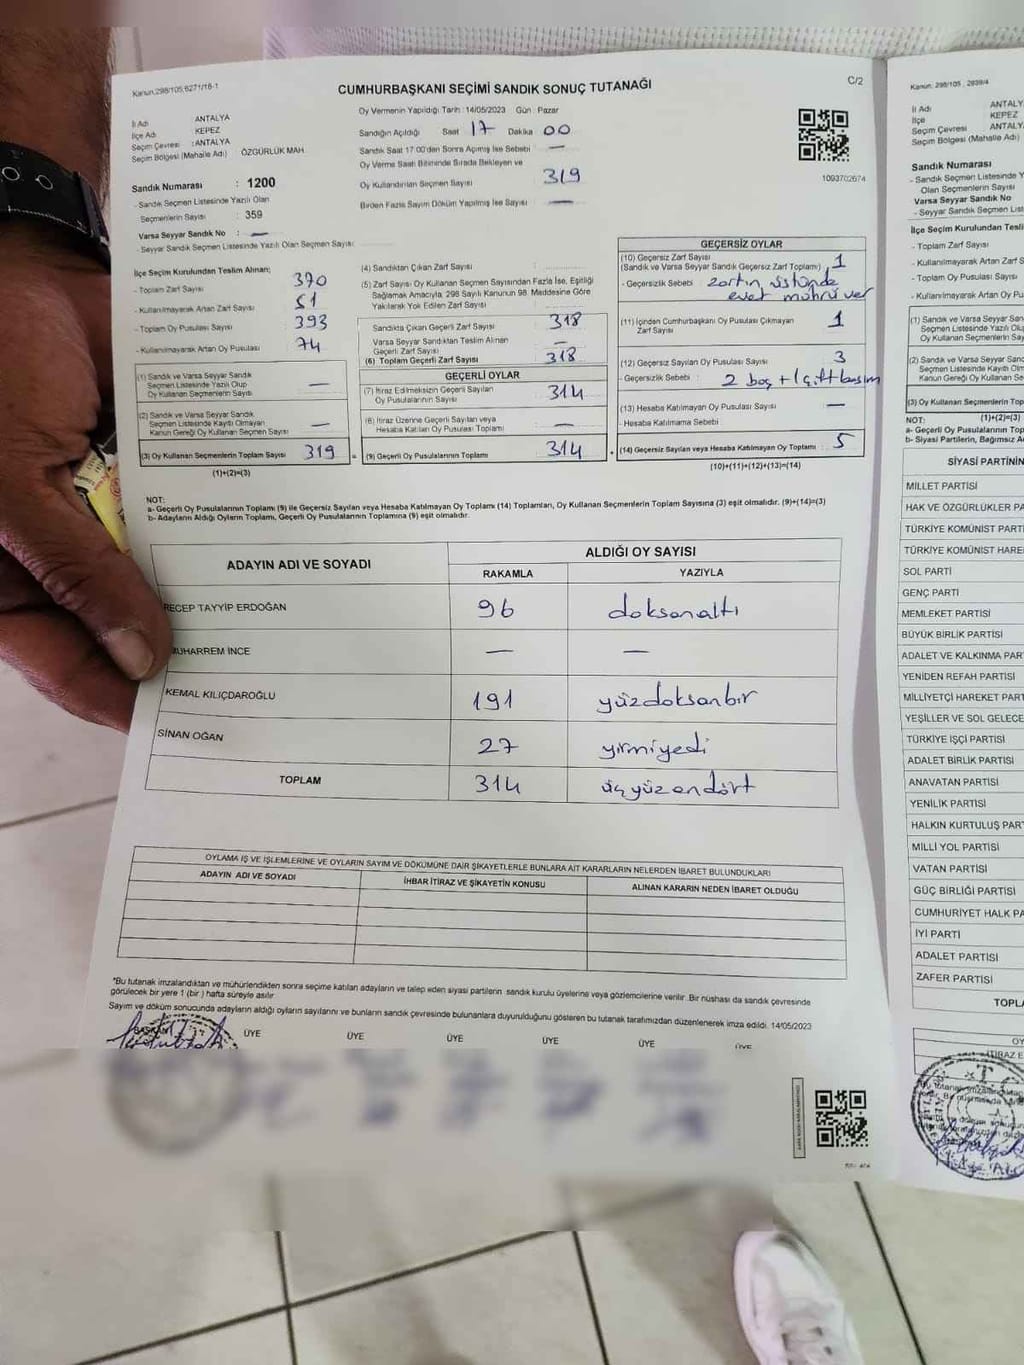 Kanun:298/105,6271/18-1
C/2
CUMHURBAŞKANI SEÇİMİ SANDIK SONUÇ TUTANAĞI
İl Adı : ANTALYA
İlçe Adı : KEPEZ
Seçim Çevresi : ANTALYA
Seçim Bölgesi (Mahalle Adı) ÖZGÜRLÜK MAH.
Sandık Numarası : 1200
- Sandık Seçmen Listesinde Yazılı Olan
Seçmenlerin Sayısı : 359
Varsa Seyyar Sandık No : —
- Seyyar Sandık Seçmen Listesinde Yazılı Olan Seçmen Sayısı
Oy Vermenin Yapıldığı Tarih : 14/05/2023 Gün : Pazar
Sandığın Açıldığı Saat 17 Dakika 00
Sandık Saat 17:00'den Sonra Açılmış İse Sebebi —
Oy Verme Saati Bitiminde Sırada Bekleyen ve
Oy Kullandırılan Seçmen Sayısı 319
Birden Fazla Sayım Döküm Yapılmış İse Sayısı —
1093702674
İlçe Seçim Kurulundan Teslim Alınan;
- Toplam Zarf Sayısı 370
- Kullanılmayarak Artan Zarf Sayısı 51
- Toplam Oy Pusulası Sayısı 393
- Kullanılmayarak Artan Oy Pusulası 74
(1) Sandık ve Varsa Seyyar Sandık
Seçmen Listesinde Yazılı Olup
Oy Kullanan Seçmenlerin Sayısı —
(2) Sandık ve Varsa Seyyar Sandık
Seçmen Listesinde Kaydı Olmayan
Kanun Gereği Oy Kullanan Seçmen Sayısı —
(3) Oy Kullanan Seçmenlerin Toplam Sayısı 319
(1)+(2)=(3)
(4) Sandıktan Çıkan Zarf Sayısı
(5) Zarf Sayısı Oy Kullanan Seçmen Sayısından Fazla İse, Eşitliği
Sağlamak Amacıyla, 298 Sayılı Kanunun 98. Maddesine Göre
Yakılarak Yok Edilen Zarf Sayısı
Sandıkta Çıkan Geçerli Zarf Sayısı 318
Varsa Seyyar Sandıktan Teslim Alınan
Geçerli Zarf Sayısı —
(6) Toplam Geçerli Zarf Sayısı 318
GEÇERLİ OYLAR
(7) İtiraz Edilmeksizin Geçerli Sayılan
Oy Pusulalarının Sayısı 314
(8) İtiraz Üzerine Geçerli Sayılan veya
Hesaba Katılan Oy Pusulası Toplamı —
= (9) Geçerli Oy Pusulalarının Toplamı 314 +
GEÇERSİZ OYLAR
(10) Geçersiz Zarf Sayısı
(Sandık ve Varsa Seyyar Sandık Geçersiz Zarf Toplamı) 1
- Geçersizlik Sebebi : zarfın üstünde
evet mührü var
(11) İçinden Cumhurbaşkanı Oy Pusulası Çıkmayan
Zarf Sayısı 1
(12) Geçersiz Sayılan Oy Pusulası Sayısı 3
- Geçersizlik Sebebi : 2 boş + 1 çift basım
(13) Hesaba Katılmayan Oy Pusulası Sayısı —
- Hesaba Katılmama Sebebi
(14) Geçersiz Sayılan veya Hesaba Katılmayan Oy Toplamı 5
(10)+(11)+(12)+(13)=(14)
NOT:
a- Geçerli Oy Pusulalarının Toplamı (9) ile Geçersiz Sayılan veya Hesaba Katılmayan Oy Toplamı (14) Toplamları, Oy Kullanan Seçmenlerin Toplam Sayısına (3) eşit olmalıdır. (9)+(14)=(3)
b- Adayların Aldığı Oyların Toplamı, Geçerli Oy Pusulalarının Toplamına (9) eşit olmalıdır.
ADAYIN ADI VE SOYADI ALDIĞI OY SAYISI
RAKAMLA YAZIYLA
RECEP TAYYİP ERDOĞAN 96 doksanaltı
MUHARREM İNCE — —
KEMAL KILIÇDAROĞLU 191 yüzdoksanbir
SİNAN OĞAN 27 yirmiyedi
TOPLAM 314 üçyüzondört
OYLAMA İŞ VE İŞLEMLERİNE VE OYLARIN SAYIM VE DÖKÜMÜNE DAİR ŞİKAYETLERLE BUNLARA AİT KARARLARIN NELERDEN İBARET BULUNDUKLARI
ADAYIN ADI VE SOYADI İHBAR İTİRAZ VE ŞİKAYETİN KONUSU ALINAN KARARIN NEDEN İBARET OLDUĞU
*Bu tutanak imzalandıktan ve mühürlendikten sonra seçime katılan adayların ve talep eden siyasi partilerin sandık kurulu üyelerine veya gözlemcilerine verilir. Bir nüshası da sandık çevresinde
görülecek bir yere 1 (bir) hafta süreyle asılır.
Sayım ve döküm sonucunda adayların aldığı oyların sayılarını ve bunların sandık çevresinde bulunanlara duyurulduğunu gösteren bu tutanak tarafımızdan düzenlenerek imza edildi. 14/05/2023
BAŞKAN ÜYE ÜYE ÜYE ÜYE ÜYE ÜYE
Kanun: 298/105, 2839/4
İl Adı ANTALY
İlçe KEPEZ
Seçim Çevresi ANTALY
Seçim Bölgesi (Mahalle Adı)
Sandık Numarası
- Sandık Seçmen Listesinde Y
Olan Seçmenlerin Sayısı
Varsa Seyyar Sandık No
- Seyyar Sandık Seçmen List
İlçe Seçim Kurulundan Tesli
- Toplam Zarf Sayısı
- Kullanılmayarak Artan Zarf
- Toplam Oy Pusulası Sayısı
- Kullanılmayarak Artan Oy P
(1) Sandık ve Varsa Seyyar S
Seçmen Listesinde Yazılı O
Oy Kullanan Seçmenlerin S
(2) Sandık ve Varsa Seyyar
Seçmen Listesinde Kaydı O
Kanun Gereği Oy Kullanan S
(3) Oy Kullanan Seçmenlerin Top
(1)+(2)=(3)
NOT:
a- Geçerli Oy Pusulalarının Top
b- Siyasi Partilerin, Bağımsız A
SİYASİ PARTİNİN
MİLLET PARTİSİ
HAK VE ÖZGÜRLÜKLER PA
TÜRKİYE KOMÜNİST PARTİ
TÜRKİYE KOMÜNİST HARE
SOL PARTİ
GENÇ PARTİ
MEMLEKET PARTİSİ
BÜYÜK BİRLİK PARTİSİ
ADALET VE KALKINMA PAR
YENİDEN REFAH PARTİSİ
MİLLİYETÇİ HAREKET PART
YEŞİLLER VE SOL GELECE
TÜRKİYE İŞÇİ PARTİSİ
ADALET BİRLİK PARTİSİ
ANAVATAN PARTİSİ
YENİLİK PARTİSİ
HALKIN KURTULUŞ PAR
MİLLİ YOL PARTİSİ
VATAN PARTİSİ
GÜÇ BİRLİĞİ PARTİSİ
CUMHURİYET HALK PA
İYİ PARTİ
ADALET PARTİSİ
ZAFER PARTİSİ
TOPLA
OY
İTİRAZ E
T.C.